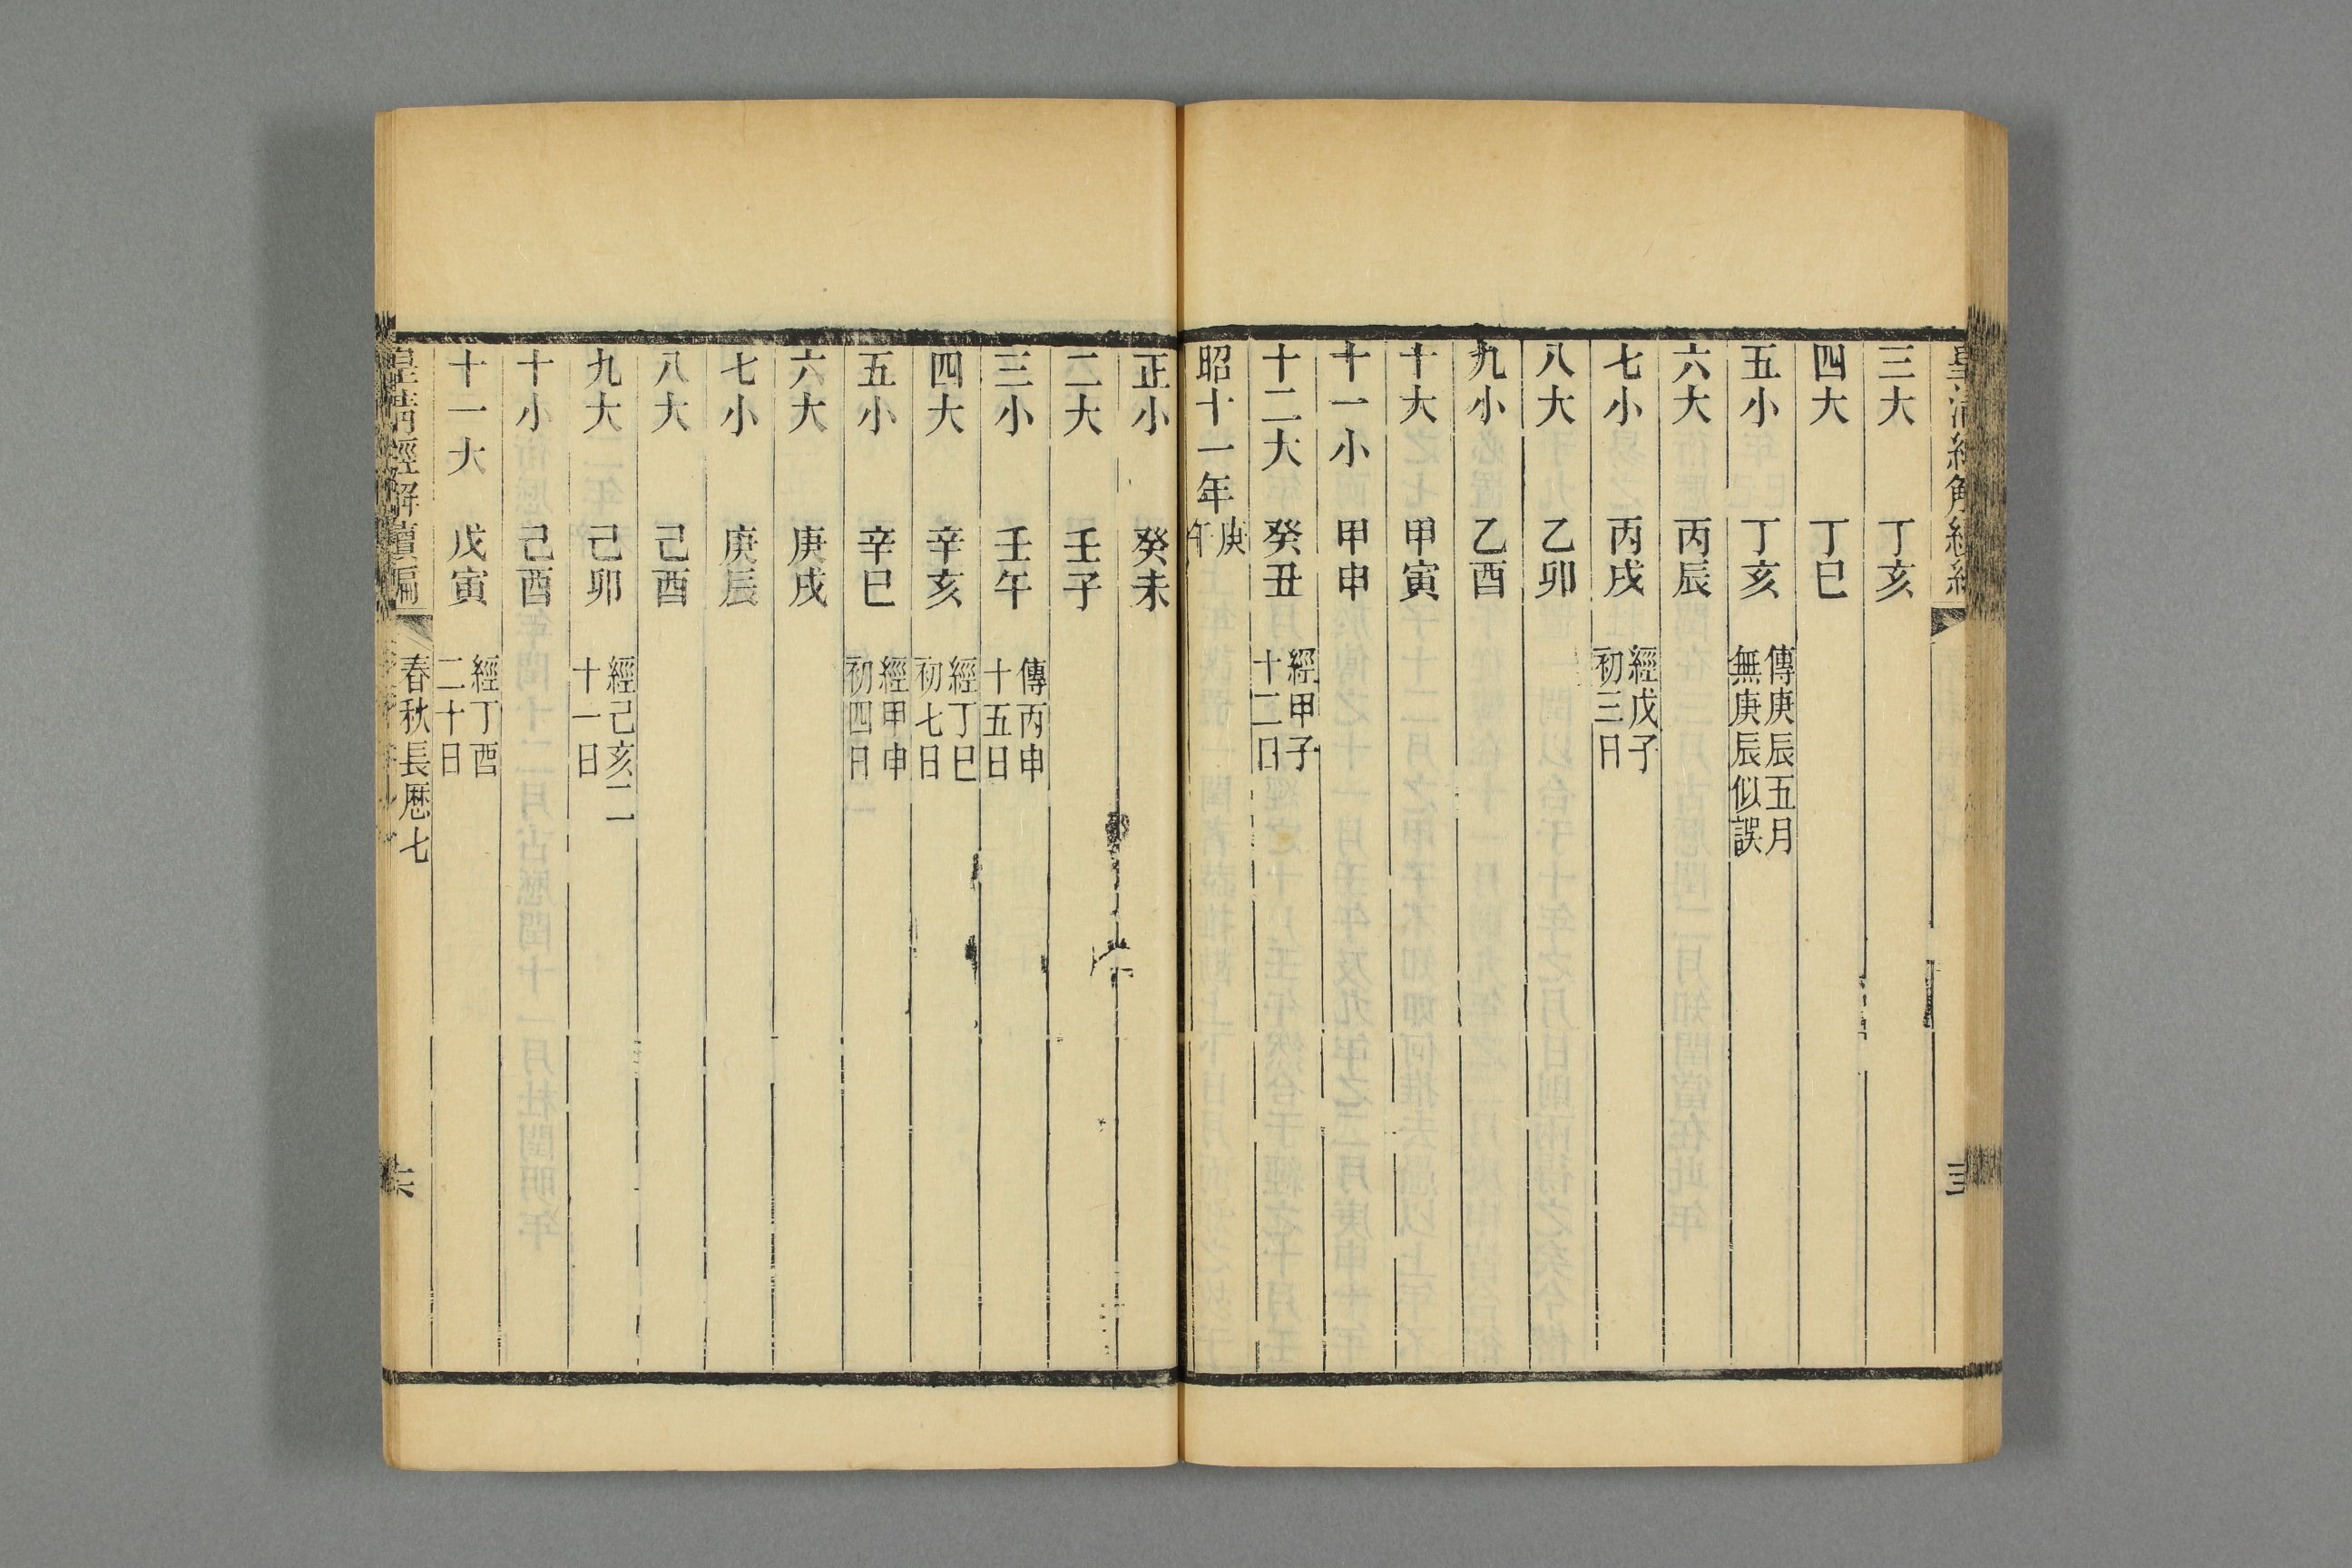 三大　丁亥
四大　丁巳
五小　丁亥　傳庚辰五月
無庚辰似誤
六大　丙辰
七小　丙戌　經戊子
初三日
八大　乙卯
九小　乙酉
十大　甲寅
十一小　甲申
十二大　癸丑　經甲子
十二日
昭十一年　庚
午
正小　癸未
二大　壬子
三小　壬午　傳丙申
十五日
四大　辛亥　經丁巳
初七日
五小　辛巳　經甲申
初四日
六大　庚戌
七小　庚辰
八大　己酉
九大　己卯　經己亥二
十一日
十小　己酉
十一大　戊寅　經丁酉
二十日
皇清經解續編　春秋長厯七